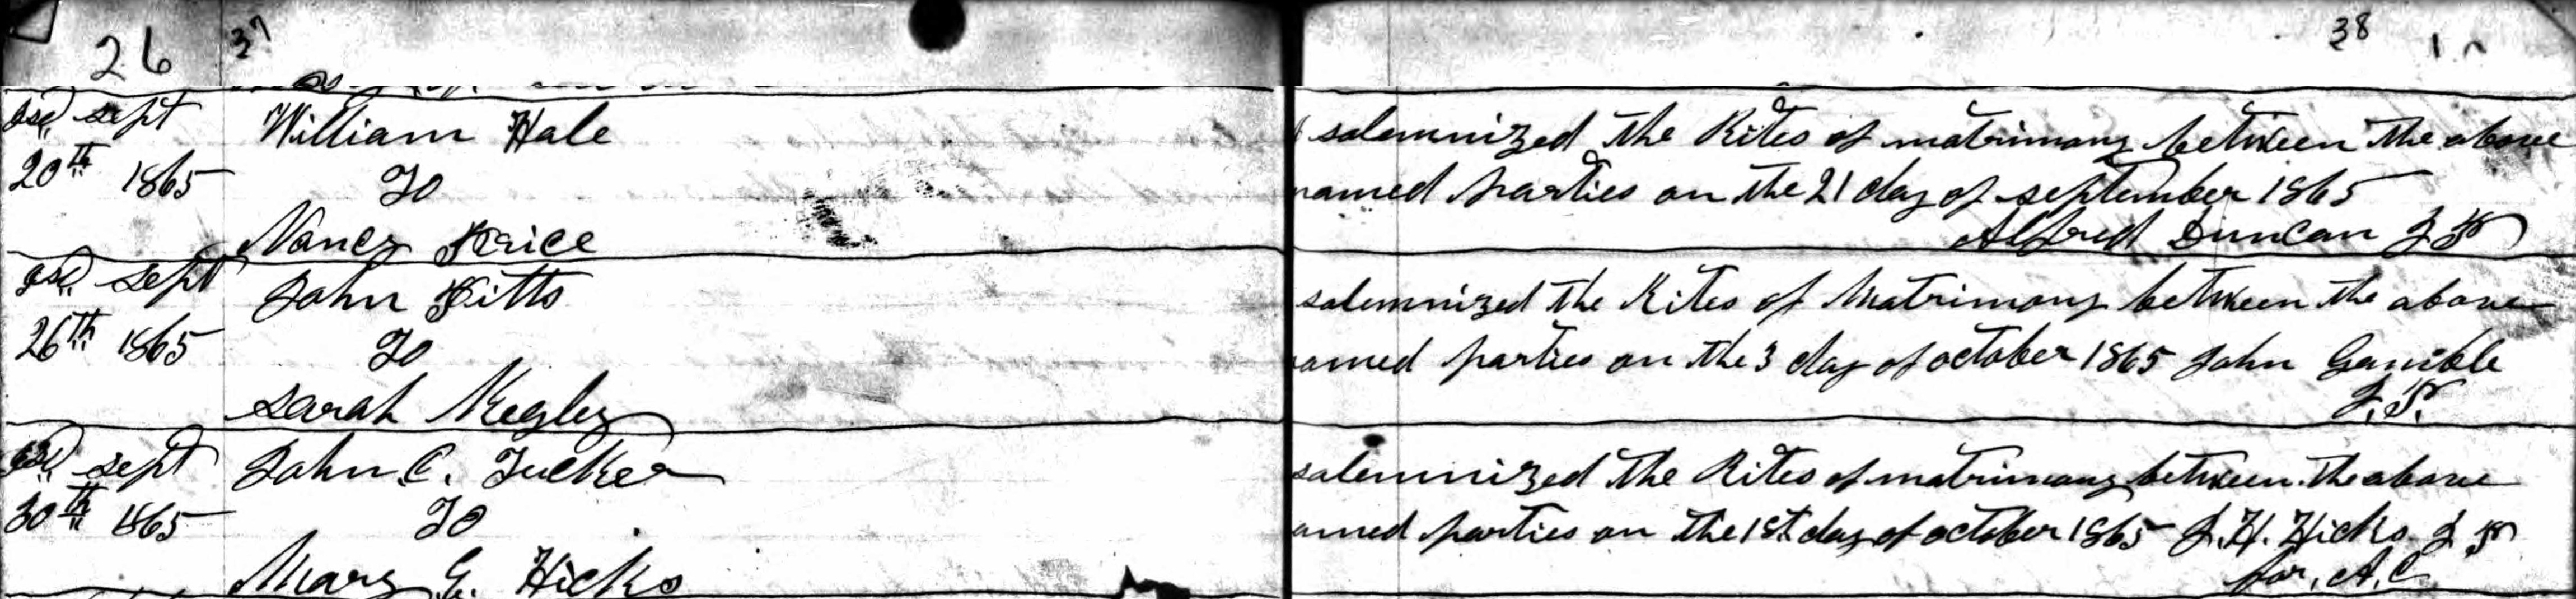 26 37
38
Issd sept
20th 1865
William Hale
To
Nancy Price
solemnized the Rites of matrimony between the above
named parties on the 21 day of september 1865
Alfred Duncan J P
Issd sept
26th 1865
John Pitts
To
Sarah Kegley
solemnized the Rites of Matrimony between the above
named parties on the 3 day of october 1865 John Gamble
J. P.
Issd sept
30th 1865
John C. Tucker
To
Mary E. Hicks
solemnized the Rites of matrimony between the above
amed parties on the 1st day of october 1865 J. H. Hicks J P
for, A. C